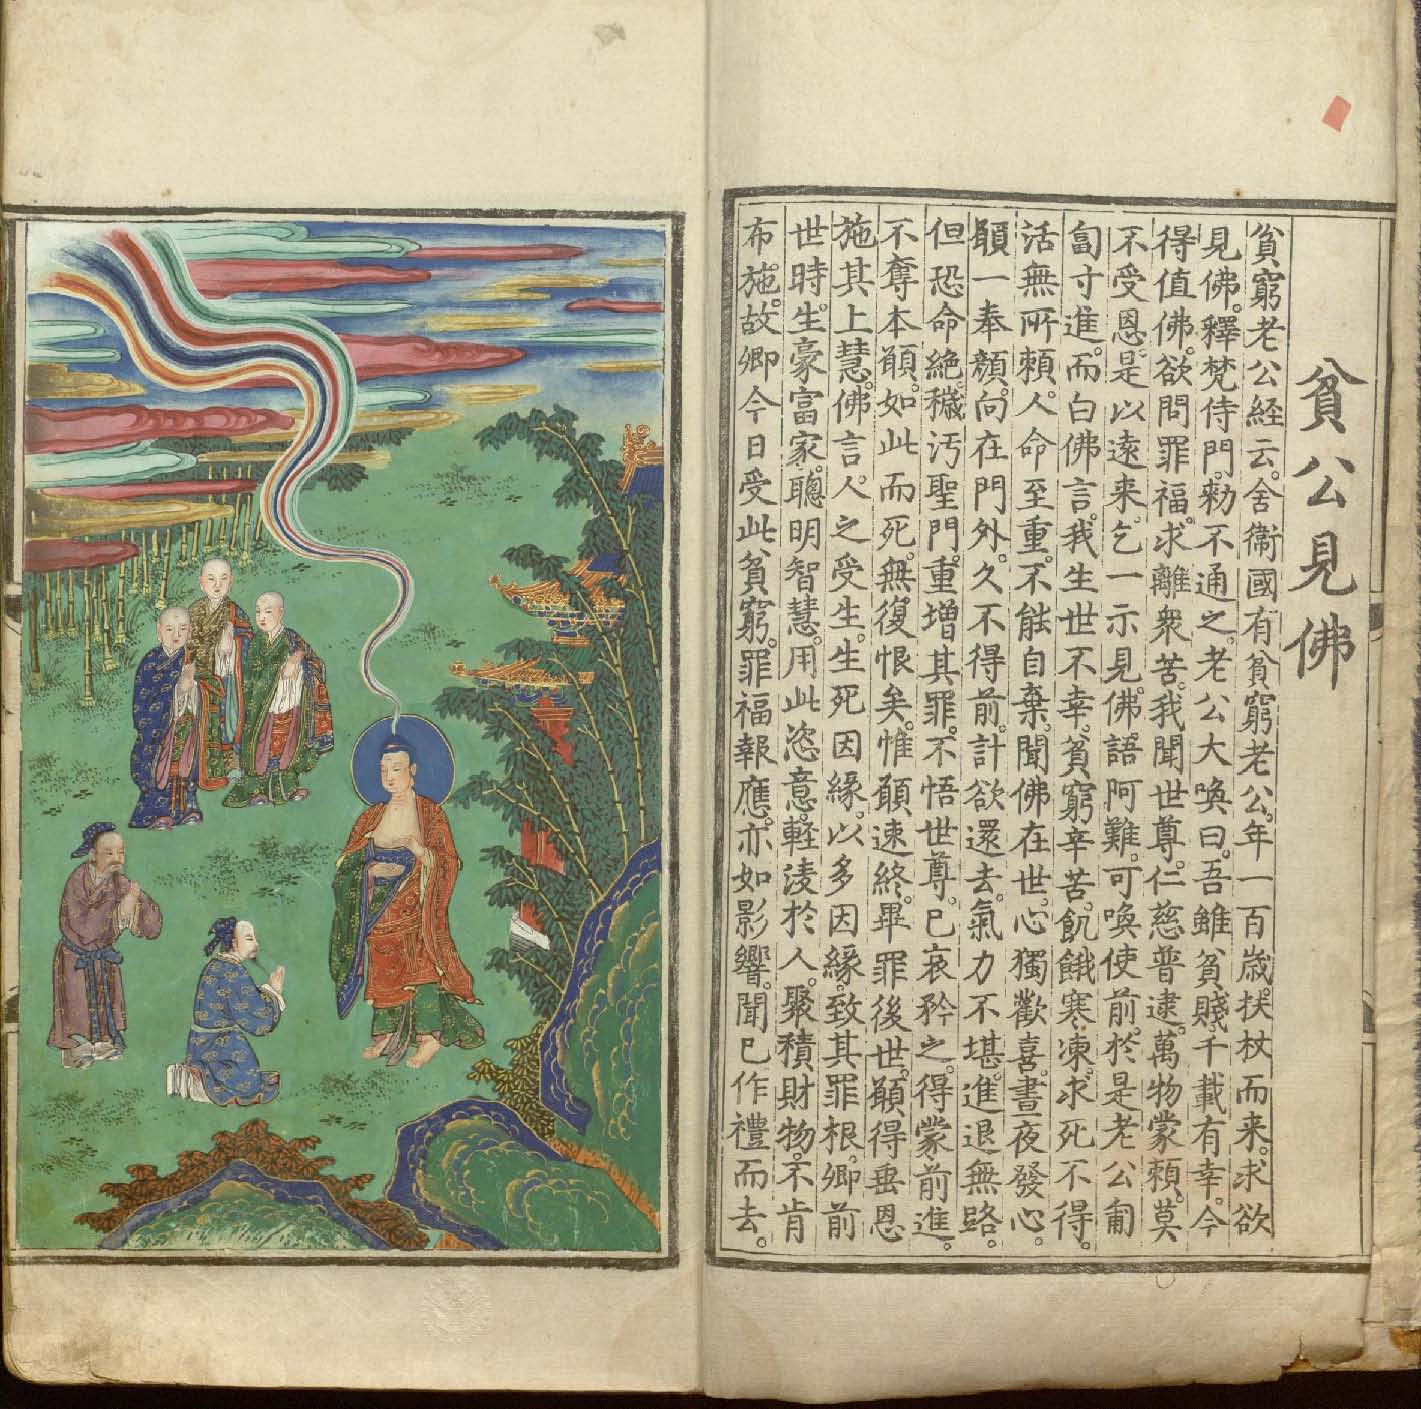 貧公見佛
貧窮老公経云。舍衞國有貧窮老公。年一百歳。扶杖而来。求欲
見佛。釋梵侍門。勑不通之。老公大喚曰。吾雖貧賤。千載有幸。今
得值佛。欲問罪福。求離衆苦。我聞世尊。仁慈普逮。萬物蒙頼。莫
不受恩。是以遠来。乞一示見。佛語阿難。可喚使前。於是老公匍
匐寸進。而白佛言。我生世不幸。貧窮辛苦。飢餓寒凍。求死不得。
活無所頼。人命至重。不能自棄。聞佛在世。心獨歡喜。晝夜發心。
願一奉顔。向在門外。久不得前。計欲還去。氣力不堪。進退無路。
但恐命絶。穢汚聖門。重增其罪。不悟世尊。已哀矜之。得蒙前進。
不奪本願。如此而死。無復恨矣。惟願速終。畢罪後世。願得垂恩
施其上慧。佛言。人之受生。生死因緣。以多因緣。致其罪根。卿前
世時。生豪富家。聰明智慧。用此恣意。軽淩於人。聚積財物。不肯
布施。故卿今日受此貧窮。罪福報應。亦如影響。聞已作禮而去。